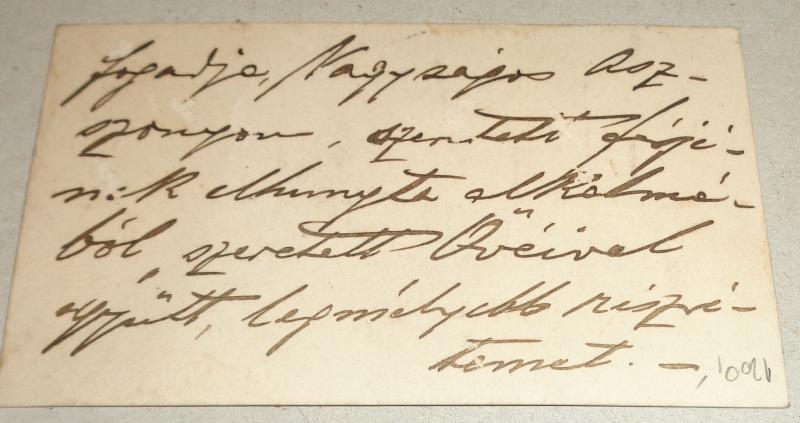 fogadja, Nagyságos Asz-
szonyom, szeretett férjé-
nek elhunyta alkalmá-
ból, szeretett Övéivel
együtt, legmélyebb részvé-
temet. —